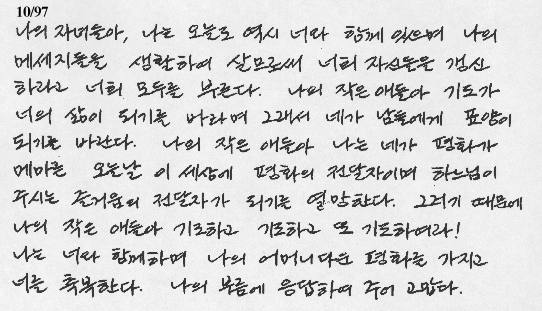 10/97
나의 자녀들아, 나는 오늘도 역시 너와 함께 있으며 나의
메세지들을 생활하여 살므로써 너희 자신들을 갱신
하라고 너희 모두를 부른다. 나의 작은 애들아 기도가
너의 삶이 되기를 바라며 그래서 네가 남들에게 표양이
되기를 바란다. 나의 작은 애들아 나는 네가 평화가
메마른 오늘날 이 세상에 평화의 전달자이며 하느님이
주시는 즐거움의 전달자가 되기를 열망한다. 그러기 때문에
나의 작은 애들아 기도하고 기도하고 또 기도하여라!
나는 너와 함께하며 나의 어머니다운 평화를 가지고
너를 축복한다. 나의 부름에 응답하여 주어 고맙다.